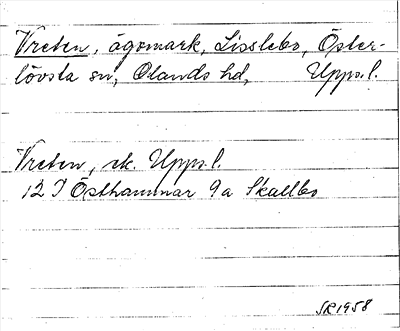 Vreten, ägomark, Lisslebo, Öster-
lövsta sn, Olands hd, Upps.l.
Vreten, ek. Upps.l.
12 I Östhammar 9a Skallbo
SR 1958